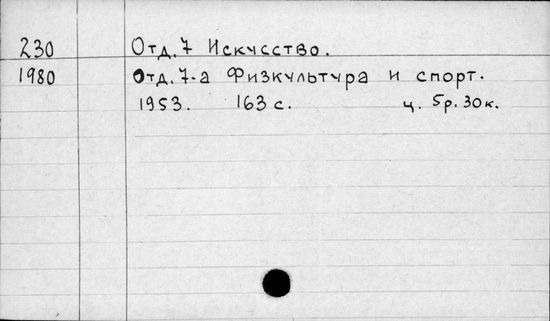 230 Отд. 7 Искусство.
1980 Отд. 7-а Физкультура и спорт.
1953. 163 с. ц. 5р. 30к.